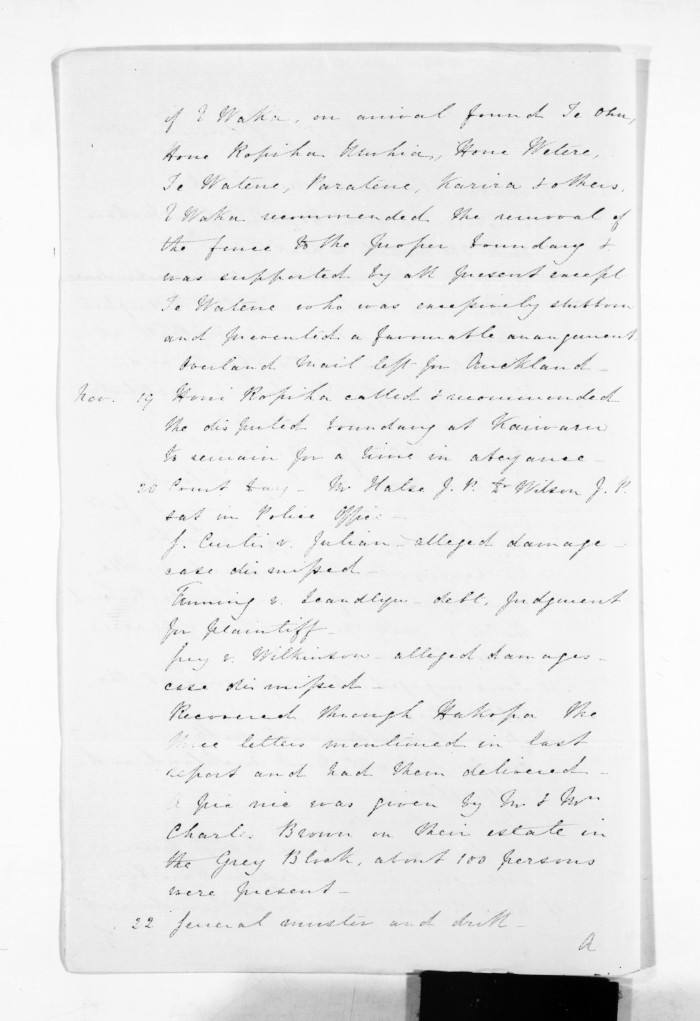 of E Waka, on arrival found Te Ohu,
Hone Ropiha Hone Wetere,
Te Watene, Paratene, Karira & others.
E Waka recommended the removal of
the fence to the proper boundary &
was supported by all present except
Te Watene who was excessively stubborn
and prevented a favourable arrangement
Overland Mail left for Auckland -
Nov. 19 Honi Ropiha called & recommended
the disputed boundary at Kaiwaru
to remain for a time in abeyance -
20 Court Day - Mr Halse J. P. & Mr Wilson J. P.
sat in Police Office -
J. Curtis v. Julian - alleged damage -
case dismissed -
v. - debt. Judgment
for plaintiff -
v. Wilkinson - alleged damages -
case dismissed -
Recovered through Hakopa the
three letters mentioned in last
report and had them delivered -
A pic nic was given by Mr & Mrs
Charles Brown on their estate in
the Grey Block, about 100 persons
were present -
22 General muster and drill -
A